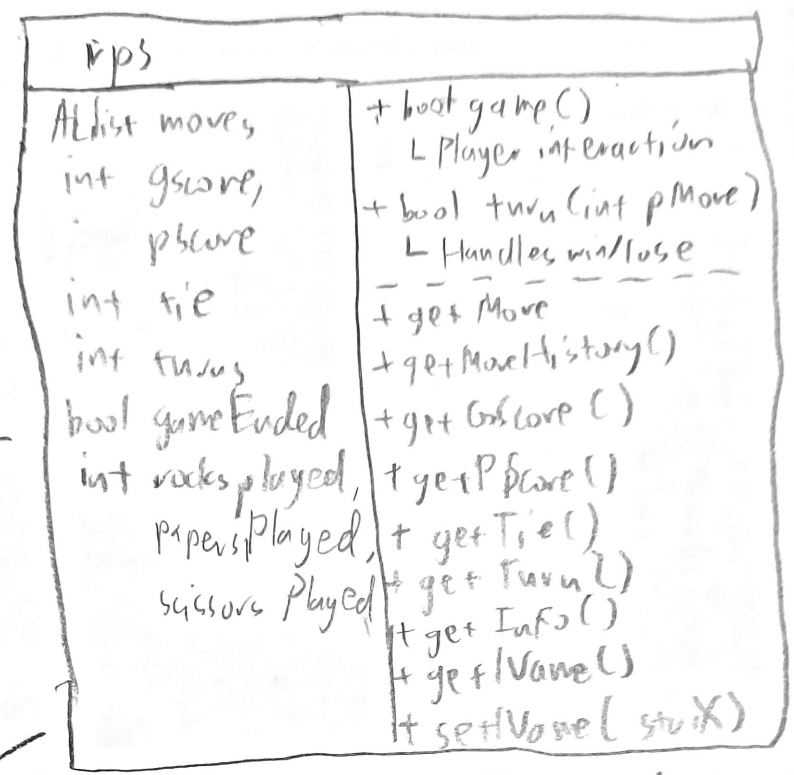 rps
ALlist moves,
int gscore,
pscore
int tie
int turns
bool gameEnded
int rocksplayed,
papersPlayed,
scissors Played
+ bool game()
L Player interaction
+ bool turn(int pMove)
L Handles win/lose
+ get Move
+ getMoveHistory()
+ get GScore()
+ getPScore()
+ getTie()
+ get Turn()
+ get Info()
+ getName()
+ setName( )